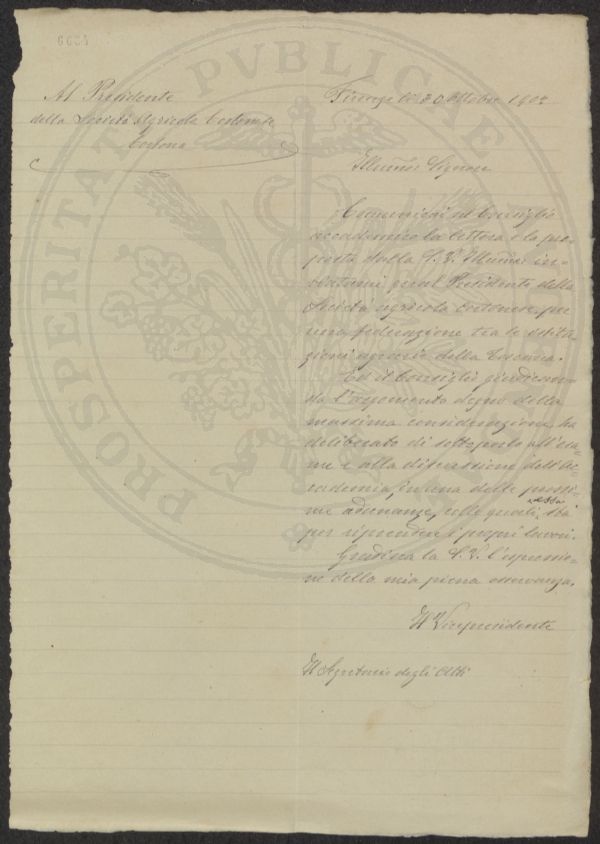 6634
PROSPERITATI PVBLICAE
Al Presidente
della Società Agricola Cortonese
Cortona
Firenze li 30 Ottobre 1902
Illmo Signore
Comunicai al Consiglio
accademico la lettera e la pro-
posta dalla S. V. Illma in-
viatami qual Presidente della
Società agricola cortonese per
una federazione tra le istitu-
zioni agrarie della Toscana.
Ed il Consiglio giudican-
do l'argomento degno della
massima considerazione, ha
deliberato di sottoporlo all'esa-
me e alla discussione dell'Ac-
cademia, in una delle prossi-
me adunanze, colle quali essa sta
per riprendere i propri lavori.
Gradisca la S. V. l'espressio-
ne della mia piena osservanza.
Il Vicepresidente
Il Segretario degli Atti